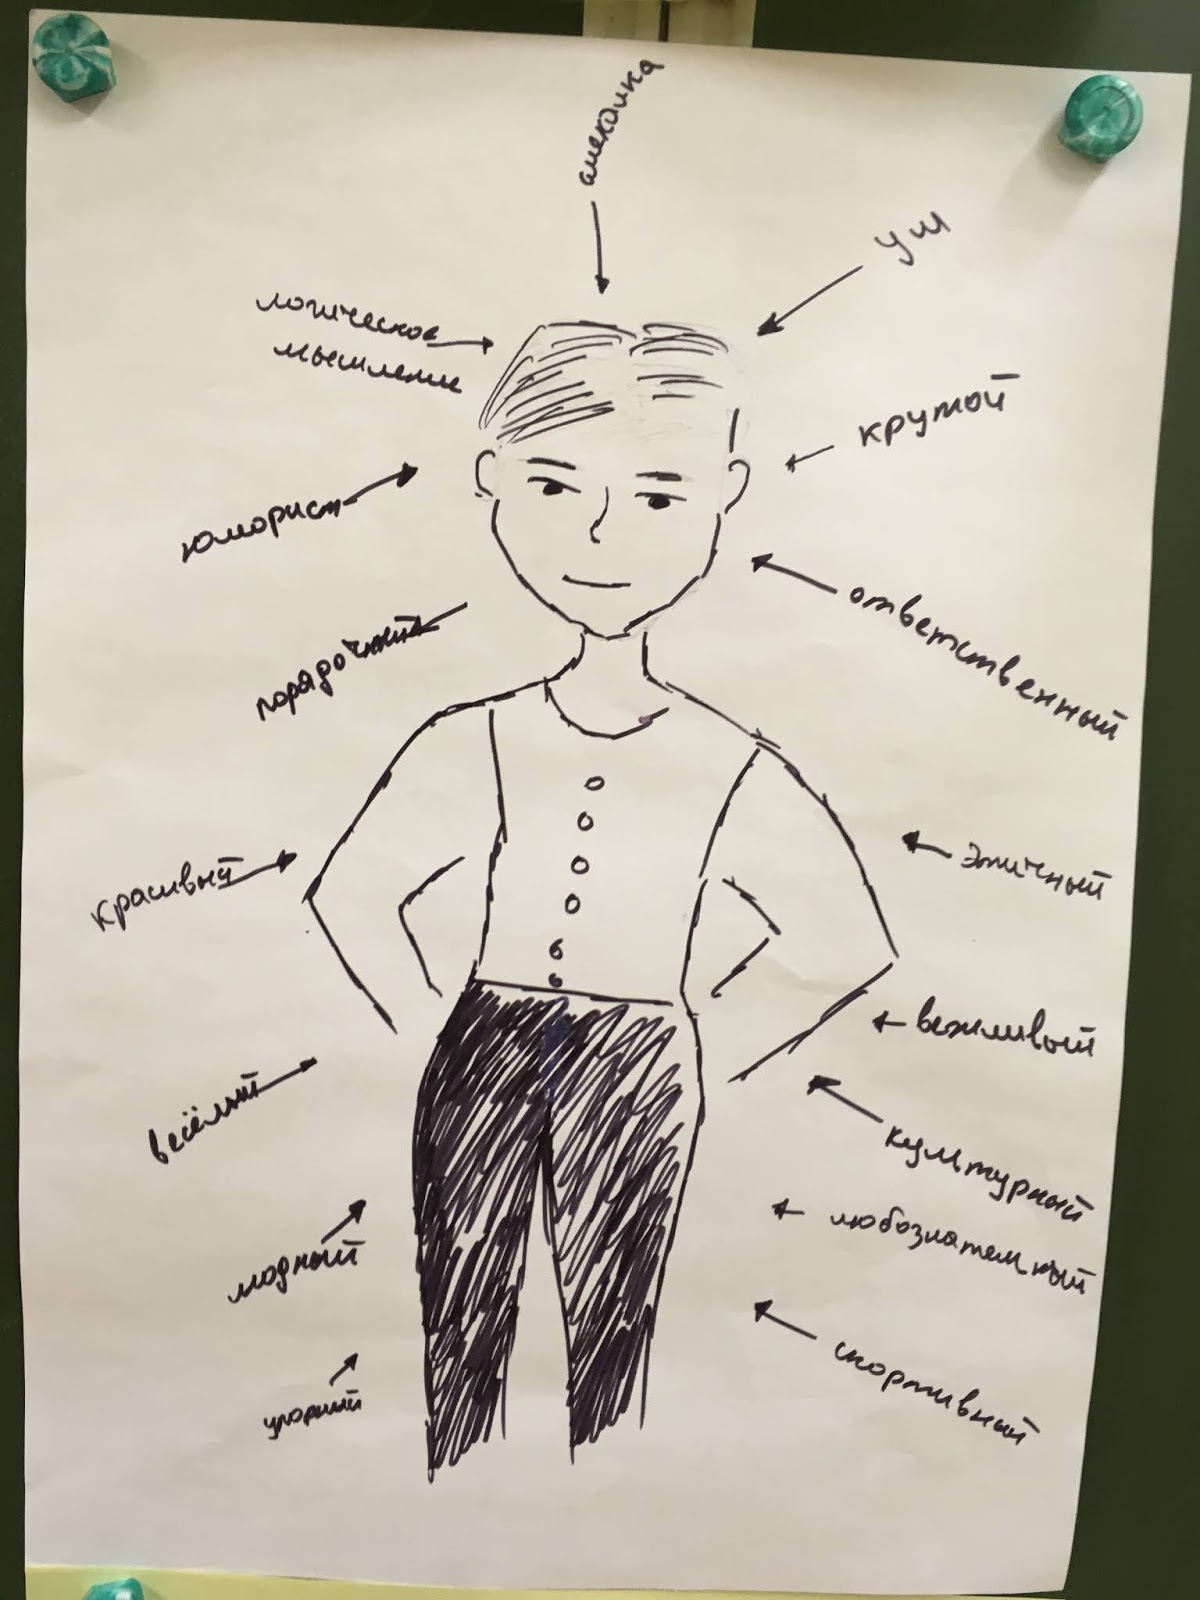 смекалка
ум
логическое
мышление
крутой
юморист
ответственный
порядочный
красивый
этичный
вежливый
весёлый
культурный
любознательный
модный
спортивный
упорный